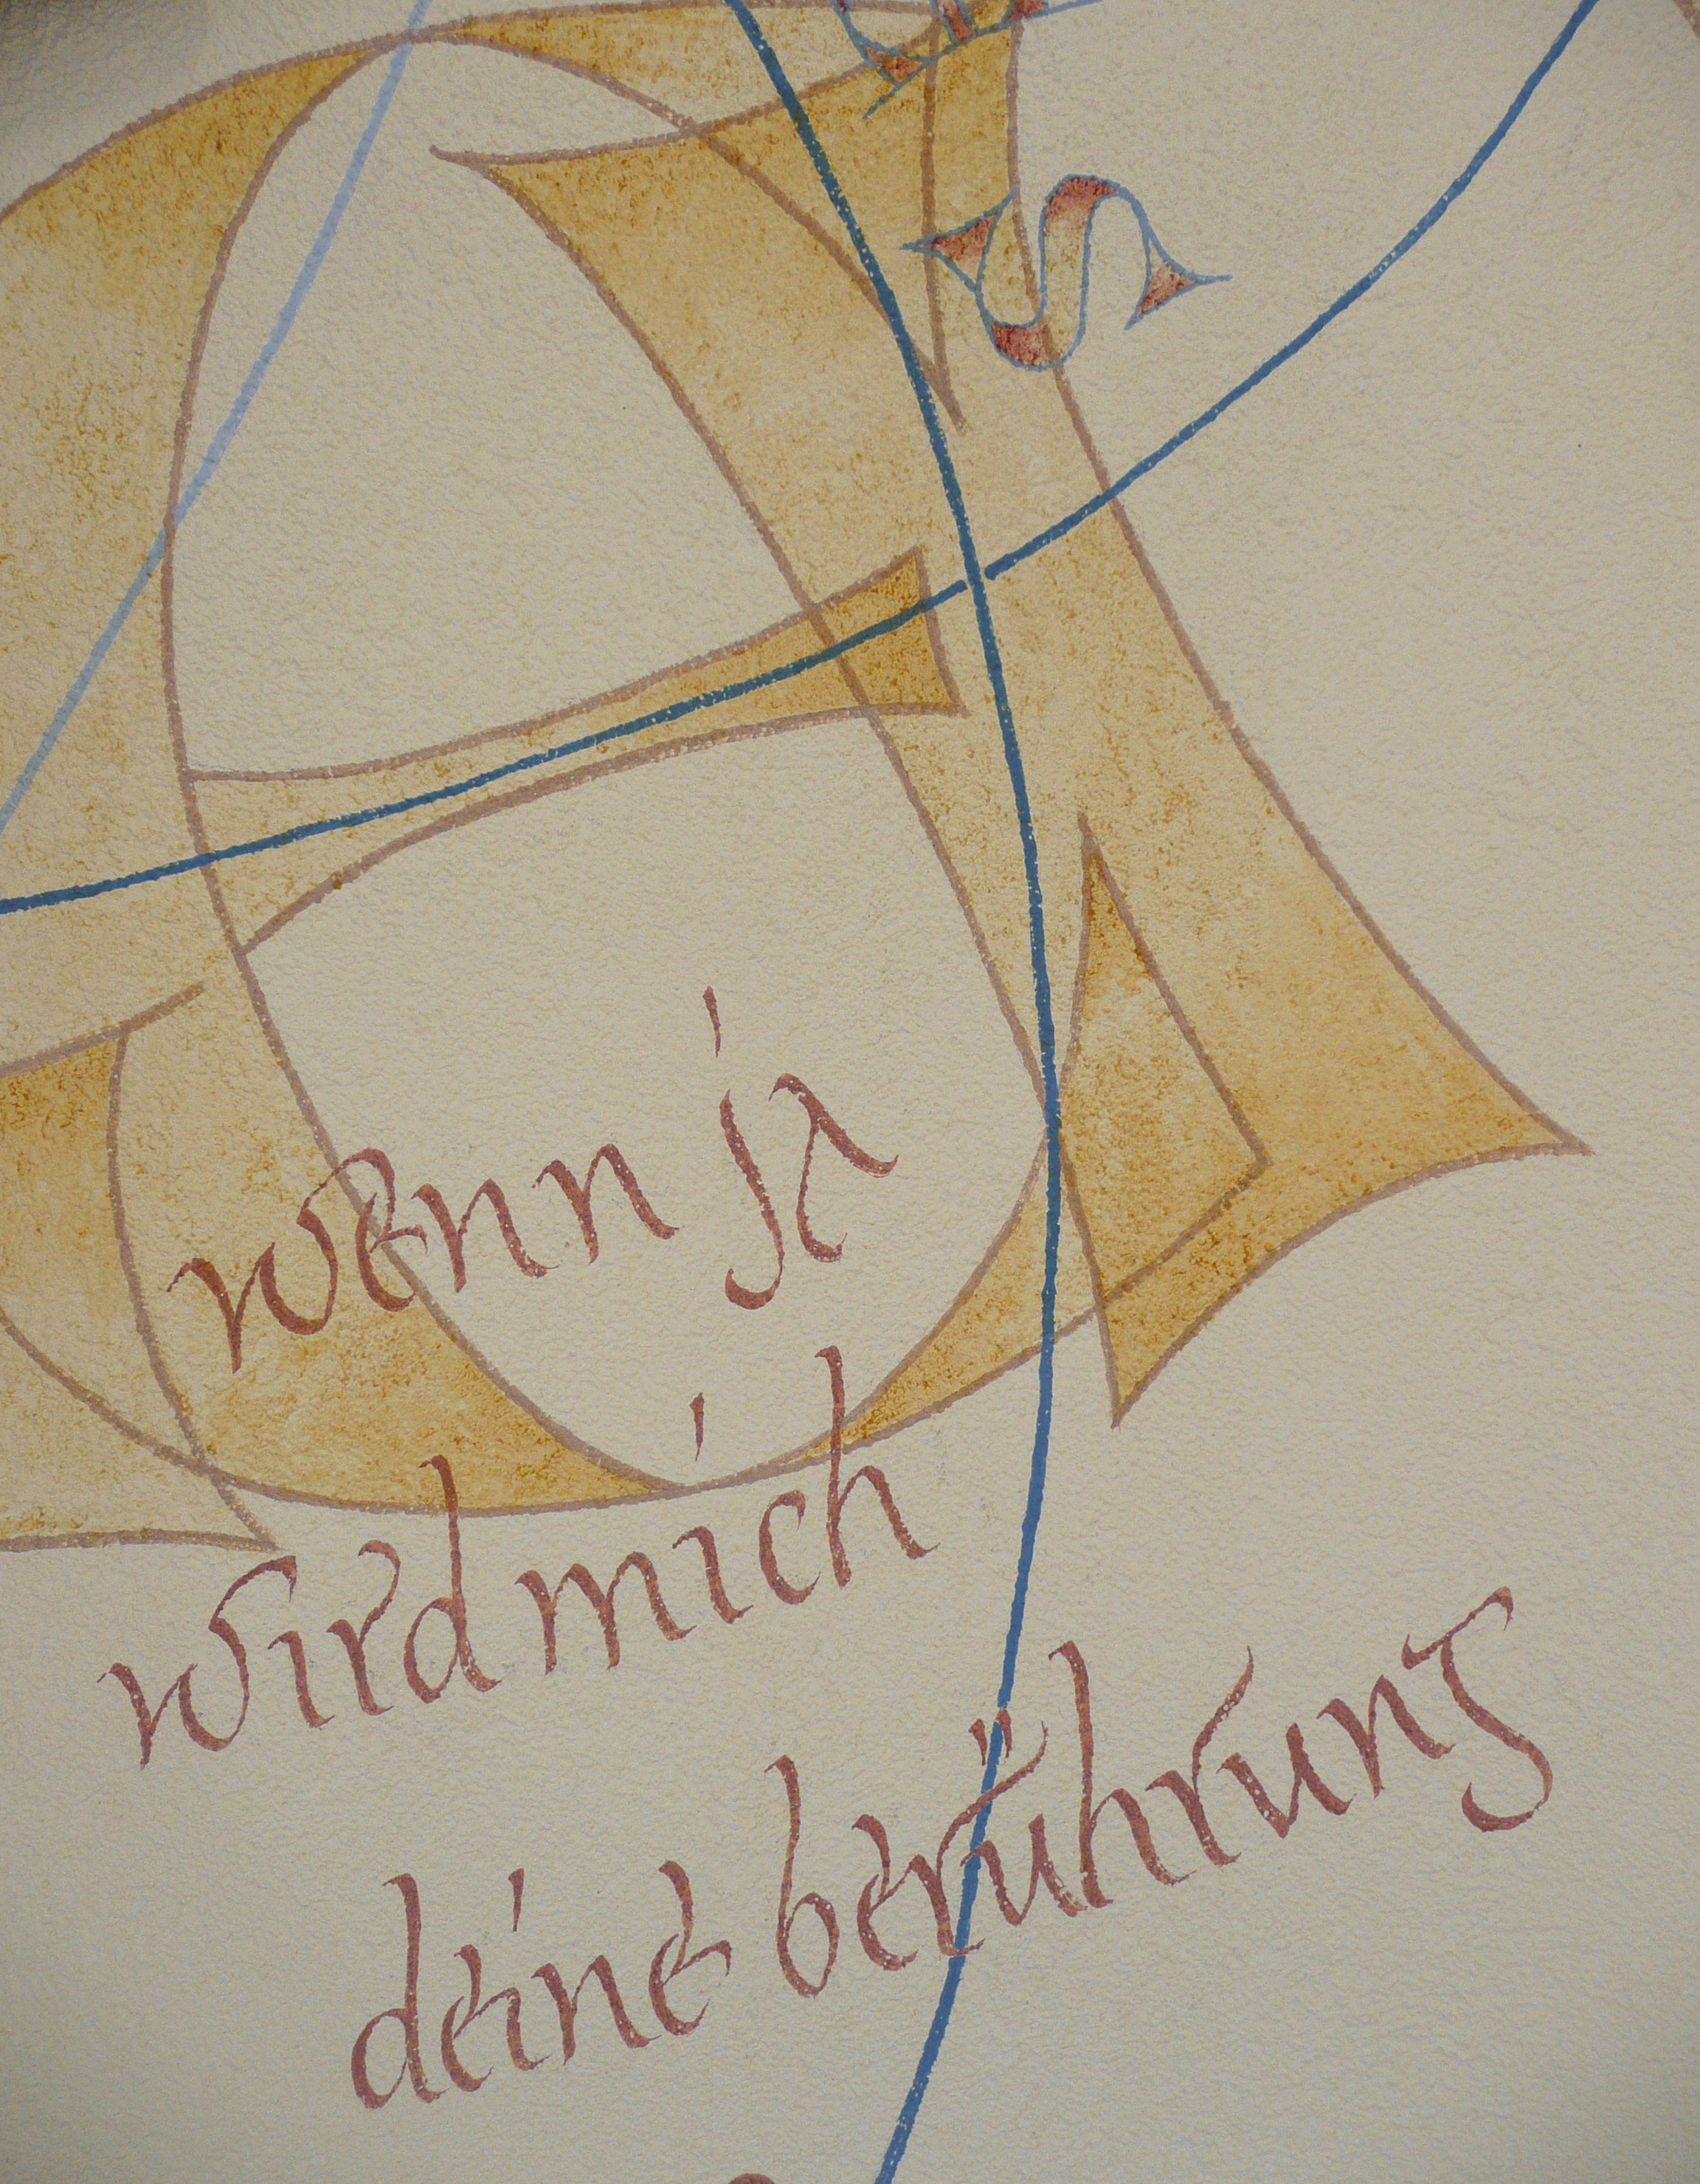 S
wenn ja
wird mich
deine berührung